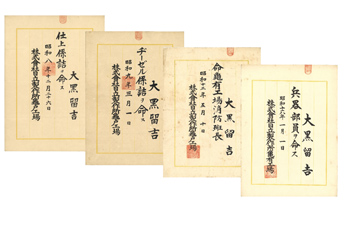 大黒留吉
仕上係詰ヲ命ス
昭和八年十二月二十六日
株式會社日立製作所亀戸工場
大黒留吉
ヂーゼル係詰ヲ命ス
昭和九年三月一日
株式會社日立製作所亀戸工場
大黒留吉
命亀有工場消防班長
株式會社日立製作所亀有工場
大黒留吉
兵器部員ヲ命ス
昭和十六年一月一日
株式會社日立製作所亀有工場